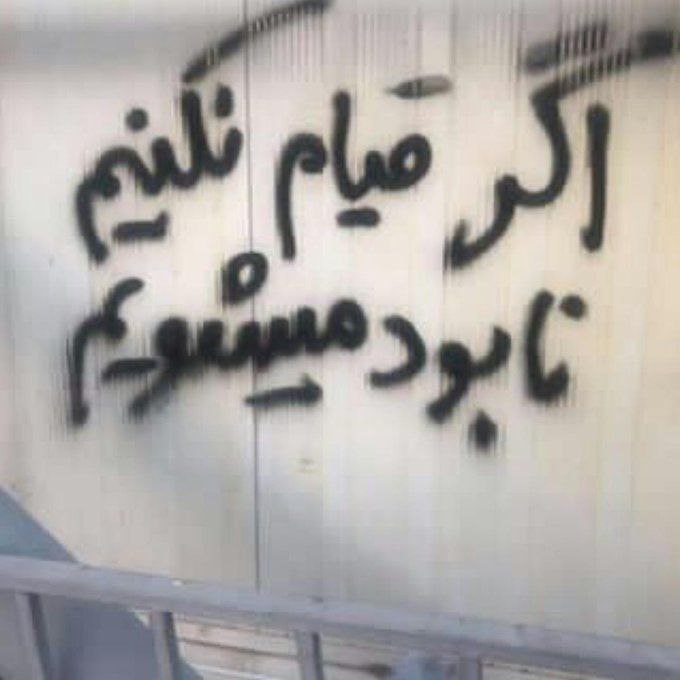 اگر قیام نکنیم
نابود میشویم